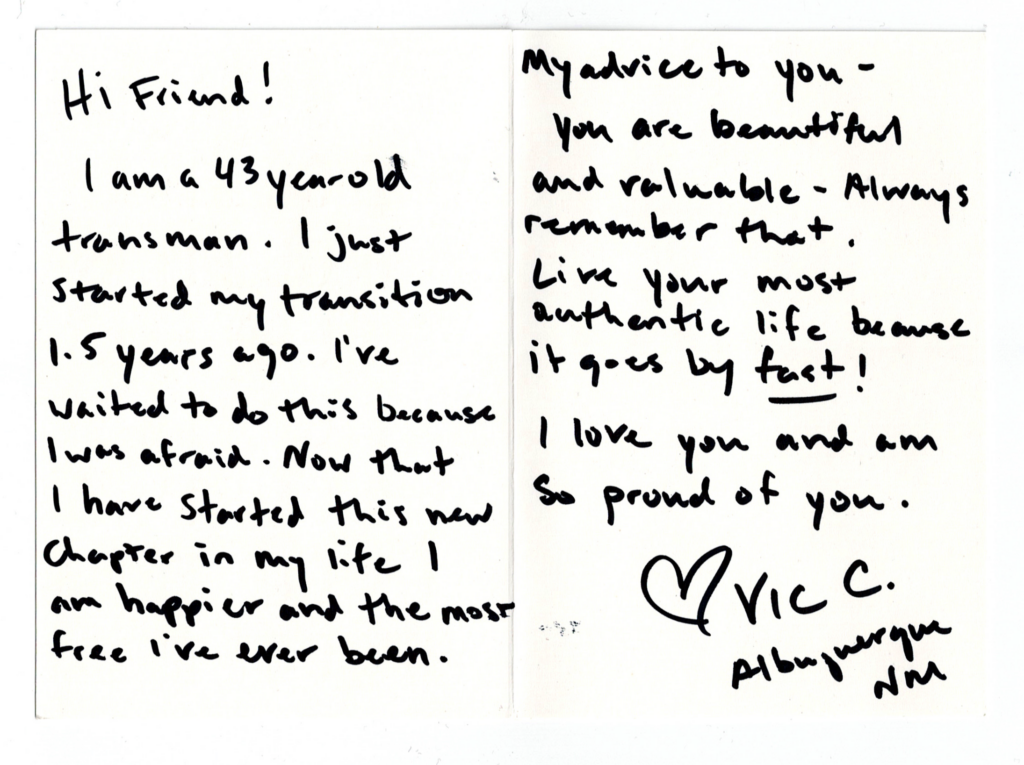 Hi Friend!
I am a 43 year old
transman. I just
started my transition
1.5 years ago. I've
waited to do this because
I was afraid. Now that
I have started this new
Chapter in my life I
am happier and the most
free i've ever been.
My advice to you -
you are beautiful
and valuable - Always
remember that.
Live your most
authentic life because
it goes by fast!
I love you and am
So proud of you.
♡ VIC C.
Albuquerque
NM